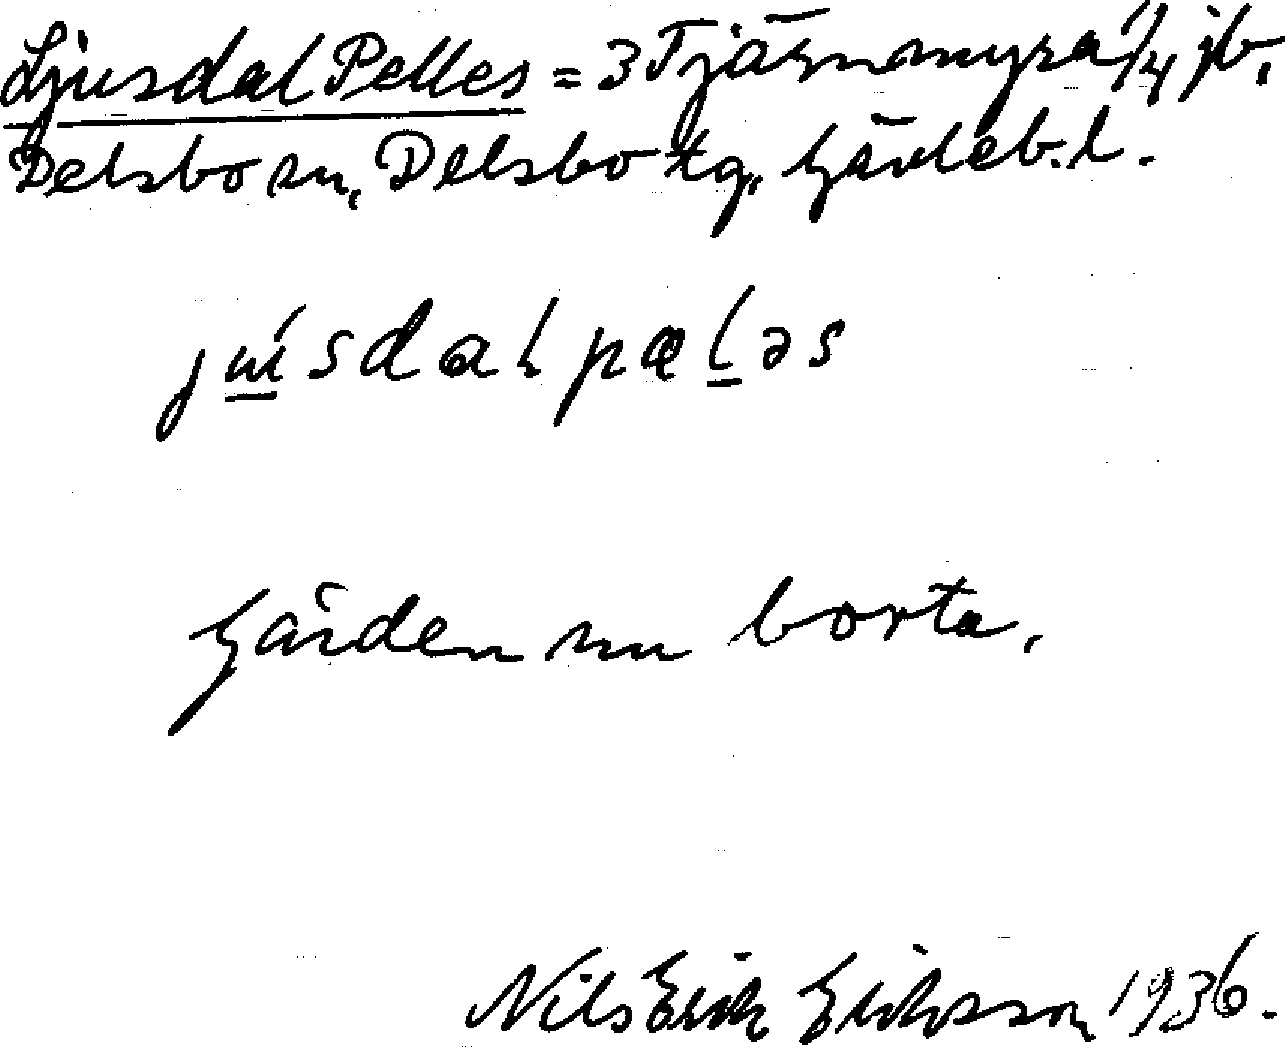 Ljusdal Pelles = 3 Tjärnmyra 1/4 jb.
Delsbo sn, Delsbo tg, Gävleb. l.
Gården nu borta.
Nils Erik Eriksson 1936.